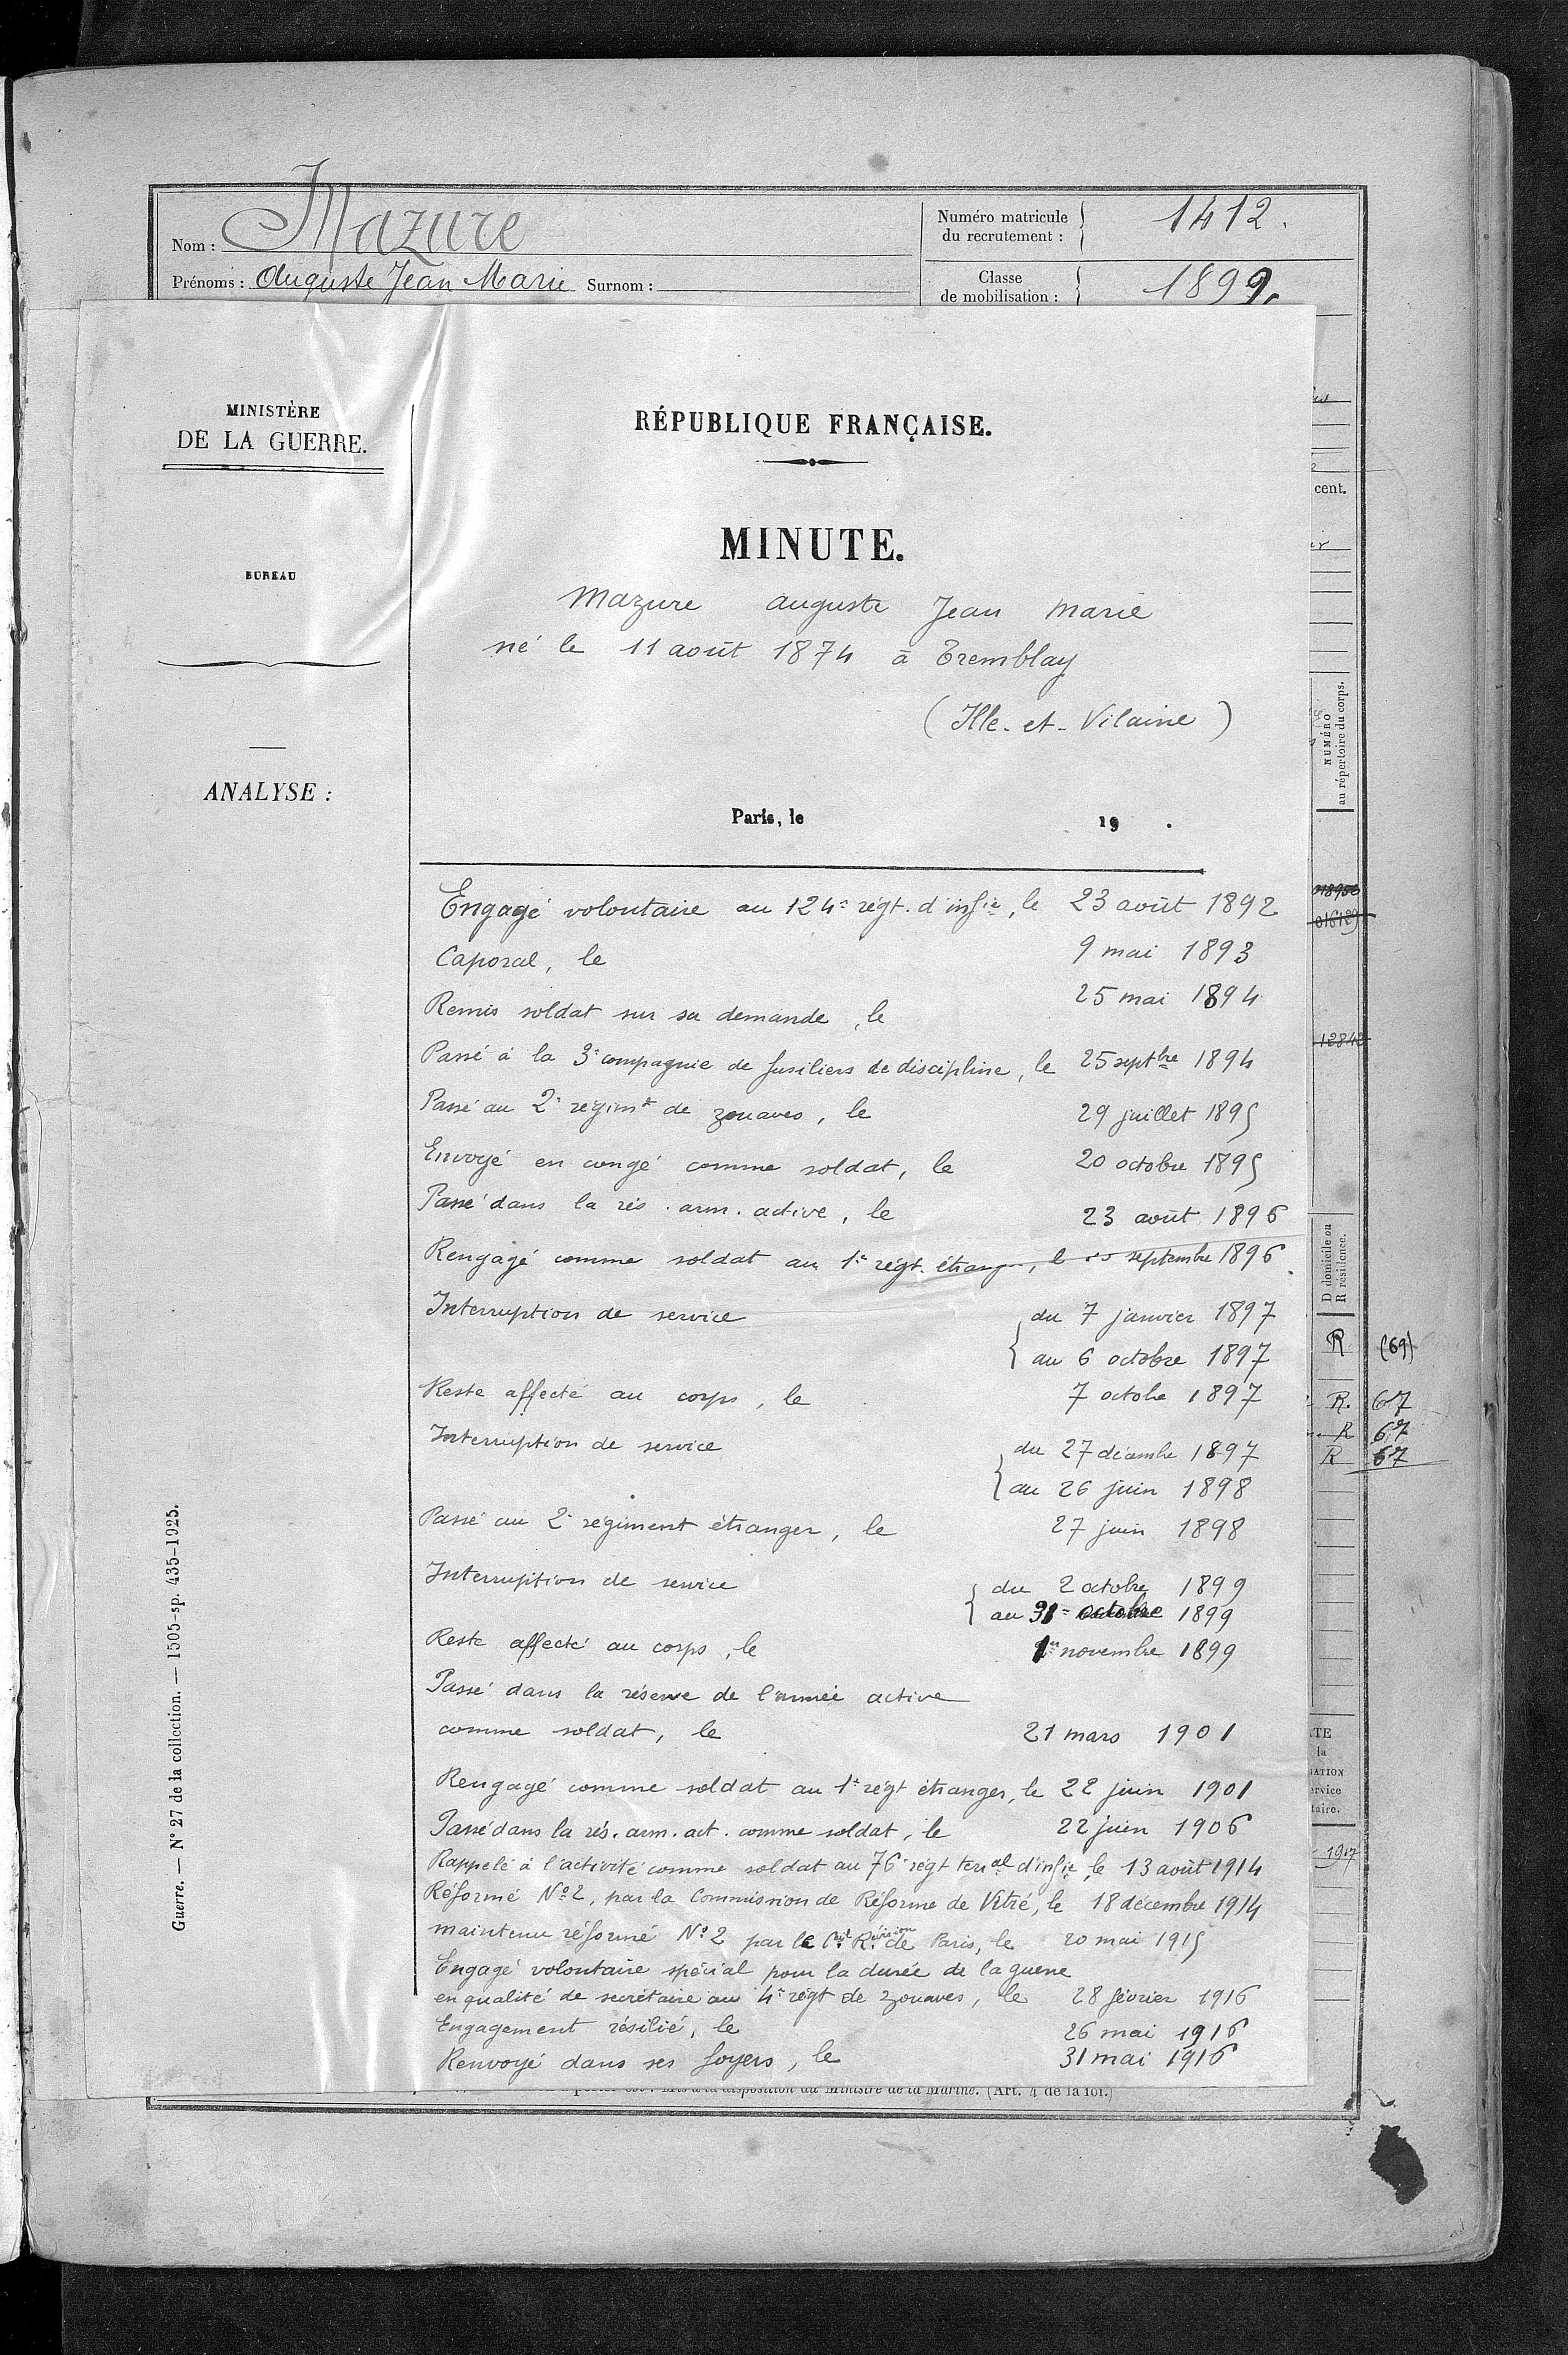 Nom : Mazure
Prénoms : Auguste Jean Marie Surnom :
Numéro matricule
du recrutement : 1412.
Classe
de mobilisation : 1899.
MINISTÈRE
DE LA GUERRE.
BUREAU
ANALYSE :
Guerre. — N° 27 de la collection. — 1505-sp. 435-1925.
RÉPUBLIQUE FRANÇAISE.
MINUTE.
Mazure auguste Jean Marie
né le 11 août 1874 à Tremblay
(Ille-et-Vilaine)
Paris, le 19 .
Engagé volontaire au 124e régt. d'infie, le 23 août 1892
Caporal, le 9 mai 1893
Remis soldat sur sa demande, le 25 mai 1894
Passé à la 3e compagnie de fusiliers de discipline, le 25 septbre 1894
Passé au 2e régimt de zouaves, le 29 juillet 1895
Envoyé en congé comme soldat, le 20 octobre 1895
Passé dans la rés. arm. active, le 23 août 1896
Rengagé comme soldat au 1er régt. étranger, le septembre 1896.
Interruption de service du 7 janvier 1897
au 6 octobre 1897
Reste affecté au corps, le 7 octobre 1897
Interruption de service du 27 décembre 1897
au 26 juin 1898
Passé au 2e régiment étranger, le 27 juin 1898
Interruption de service du 2 octobre 1899
au 31 octobre 1899
Reste affecté au corps, le 1er novembre 1899
Passé dans la réserve de l'armée active
comme soldat, le 21 mars 1901
Rengagé comme soldat au 1er régt étranger, le 22 juin 1901
Passé dans la rés. arm. act. comme soldat, le 22 juin 1906
Rappelé à l'activité comme soldat au 76e régt terral d'infie, le 13 août 1914
Réformé N° 2, par la Commission de Réforme de Vitré, le 18 décembre 1914
maintenu réformé N° 2 par le Cil Révision de Paris, le 20 mai 1915
Engagé volontaire spécial pour la durée de la guerre
en qualité de secrétaire au 4e régt de zouaves, le 28 février 1916
Engagement résilié, le 26 mai 1916
Renvoyé dans ses foyers, le 31 mai 1916
cent.
NUMÉRO
au répertoire du corps.
12842
D domicile ou
R résidence.
R (69)
R. 67
R 67
R 67
1917
Mis à la disposition du Ministre de la Marine. (Art. 4 de la loi.)